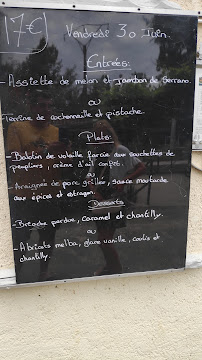 17€
Vendredi 30 Juin.
Entrées:
Assiette de melon et Jambon de Serrano.
ou
Terrine de cochonnaille et pistache.
Plats:
- Balotin de volaille farcie aux souchettes de
peupliers, crème d'ail confit.
- Araignée de porc grillée, sauce moutarde
aux épices et estragon.
Desserts
- Brioche perdue, caramel et chantilly.
ou
- Abricots melba, glace vanille, coulis et
chantilly.